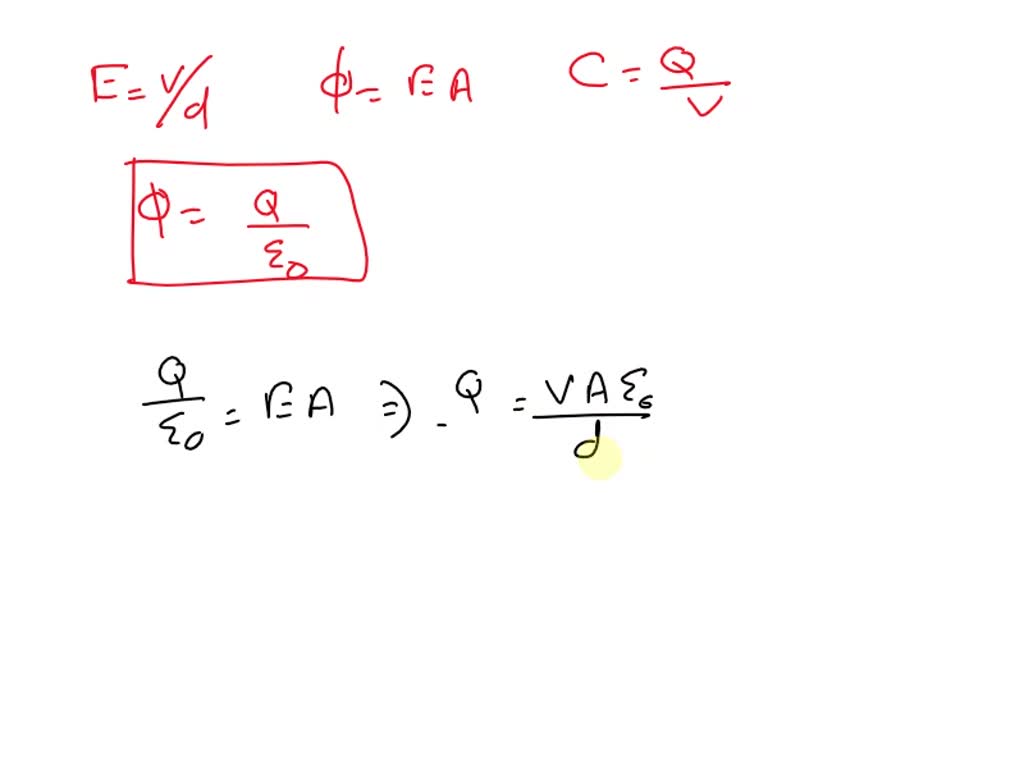 E = V/d ϕ = EA C = Q/V
ϕ = Q/ε0
Q/ε0 = EA ⇒ Q = VAε0/d